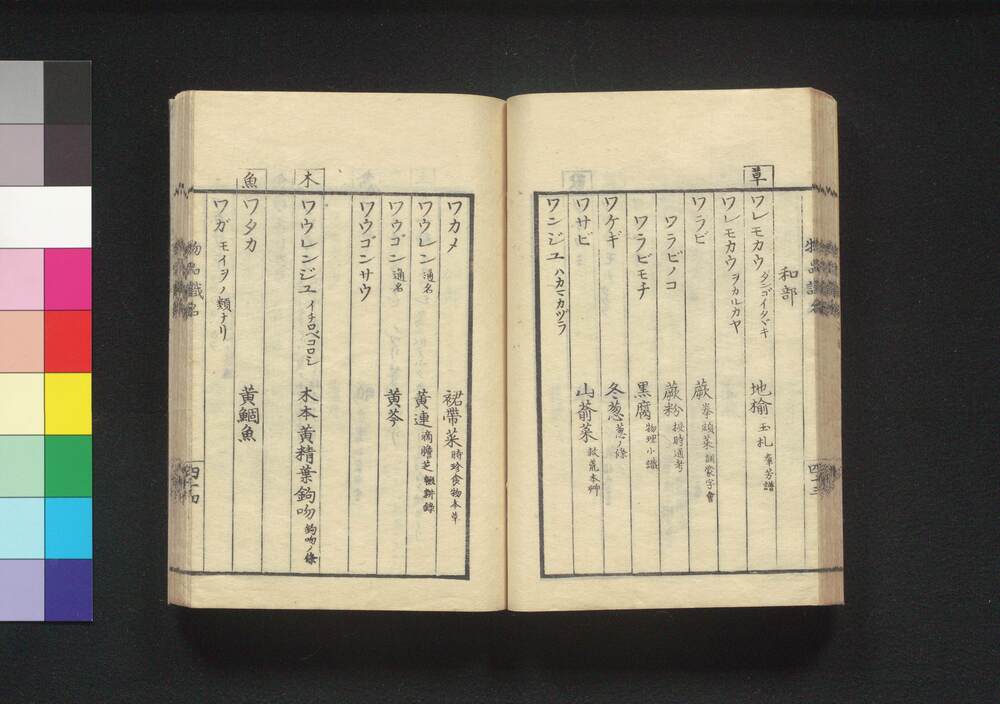 和部
草
ワレモカウ ダンゴイタヾキ 地楡 玉札 羣芳譜
ワレモカウ ヲカルカヤ
ワラビ 蕨 拳頭菜 訓蒙字會
ワラビノコ 蕨粉 授時通考
ワラビモチ 黒腐 物理小識
ワケギ 冬葱 葱ノ條
ワサビ 山萮菜 救荒本艸
ワンジユ ハカマカヅラ
四十三
ワカメ 裙帶菜 時珍食物本草
ワウレン 通名 黄連 滴膽芝 輟畊錄
ワウゴン 通名 黄芩
ワウゴンサウ
木
ワウレンジユ イチロベコロシ 木本黄精葉鉤吻 鉤吻ノ條
魚
ワタカ 黄鯝魚
ワガ モイヲノ類ナリ
物品識名
四十四